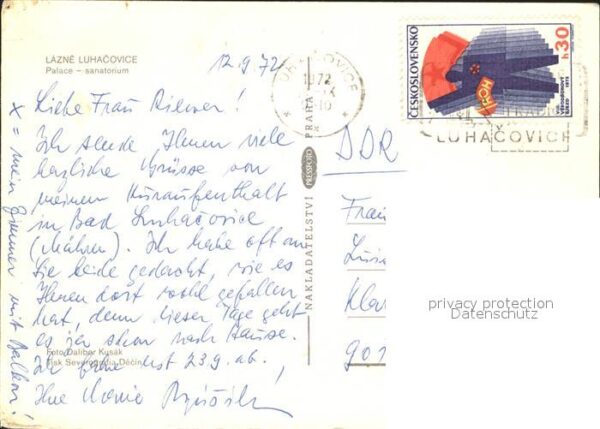 LÁZNĚ LUHAČOVICE
Palace – sanatorium
12.9.72
Liebe Frau
Ich sende Ihnen viele
herzliche Grüsse von
meinem Kuraufenthalt
in Bad Luhačovice
(Mähren). Ich habe oft an
Sie beide gedacht, wie es
Ihnen dort wohl gefallen
hat, denn dieser Tage geht
es ja schon nach Hause.
Ich fahre erst 23.9. ab.
Ihre
x = mein Zimmer mit Balkon!
Foto Dalibor Kusák
Tisk Severografia Děčín
NAKLADATELSTVÍ
PRESSFOTO
PRAHA
ČESKOSLOVENSKO
h 30
1972
LUHAČOVICE
DDR
Frau
privacy protection
Datenschutz